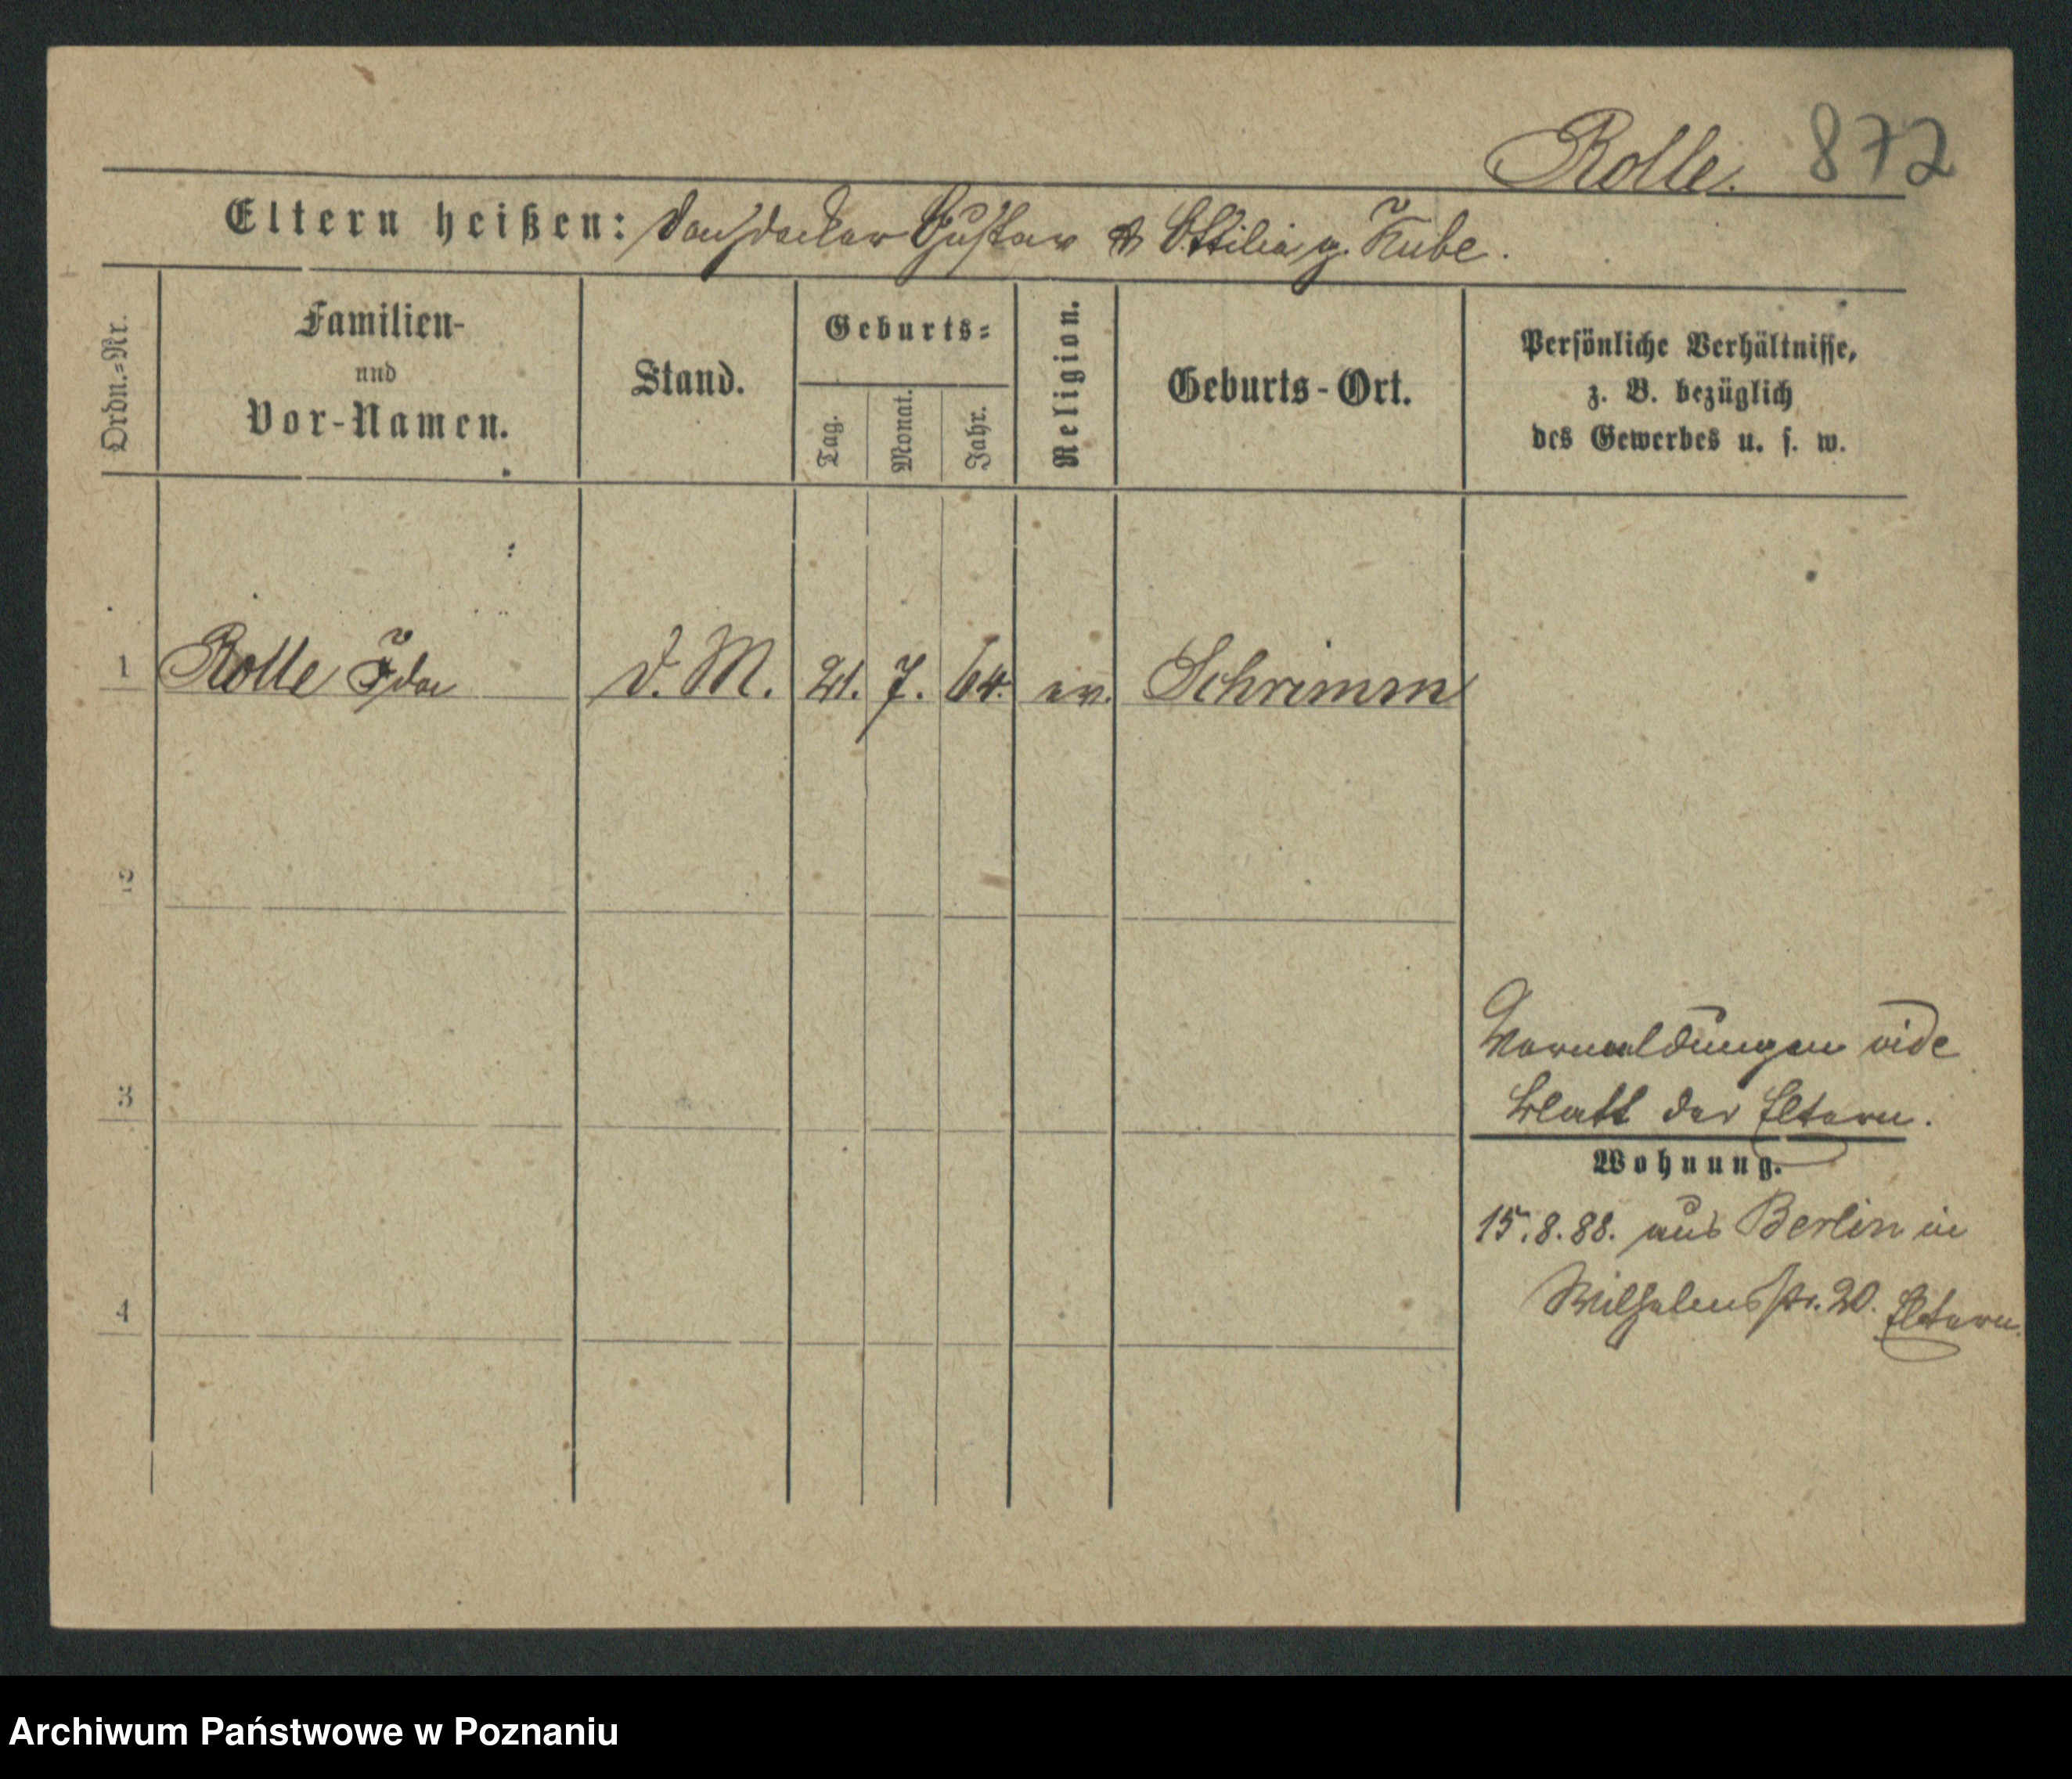 Rolle. 872
Eltern heißen: Dachdecker Gustav & Ottilia g. Kube.
Ordn.-Nr.
Familien-
und
Vor-Namen.
Stand.
Geburts-
Tag.
Monat.
Jahr.
Religion.
Geburts-Ort.
Persönliche Verhältnisse,
z. B. bezüglich
des Gewerbes u. s. w.
1 Rolle Ida d. M. 21. 7. 64. ev. Schrimm
2
3
4
Vormeldungen vide
Blatt der Eltern.
Wohnung.
15.8.88. aus Berlin in
Wilhelmsstr. 20. Eltern.
Archiwum Państwowe w Poznaniu